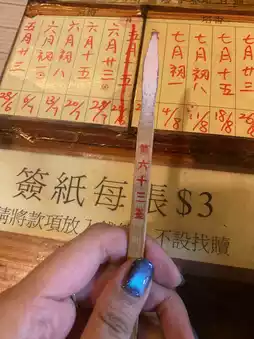 六月初八
六月十五
六月廿三
七月初一
七月初八
七月十五
七月廿三
28/6
6/7
13/7
20/7
4/8
11/8
18/8
26/8
第六十三籤
簽紙每張$3
請將款項放入 不設找贖